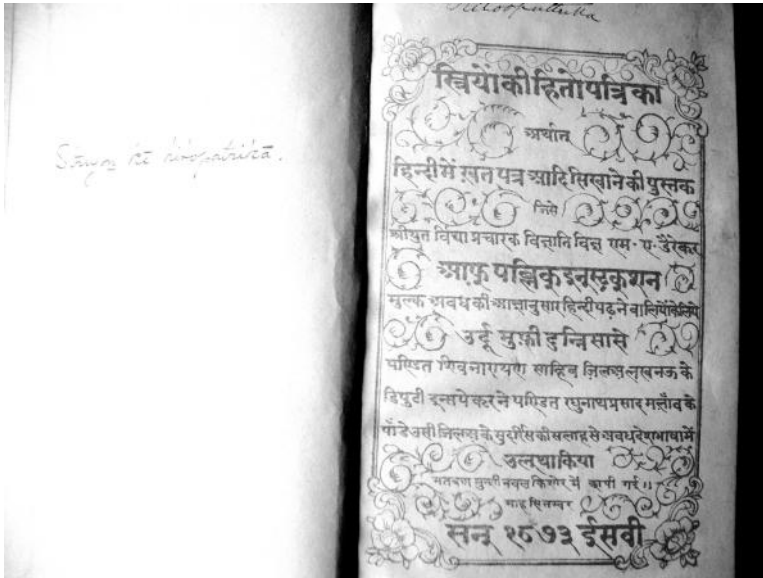 Striyoṉ kī hitopatrikā.
Hitoopattrika
स्त्रियोंकीहितोपत्रिका
अर्थात
हिन्दीमें ख़तपत्र आदिसिखानेकीपुस्तक
जिसे
श्रीयुत विद्याप्रचारक विज्ञानि विज्ञ एम॰ए॰डैरेक्टर
आफ़ पब्लिकइन्स्ट्रक्शन
मुल्क अवधकीआज्ञानुसारहिन्दीपढ़नेवालियोंकेलिये
उर्दू मुफ़ीदुन्निसासे
पण्डित शिवनारायण साहिब ज़िलअ़लखनऊ के
डिपुटी इन्स्पेक्टरने पण्डित रघुनाथप्रसाद मलाँव के
पाँडे उसीज़िलअ़के मुदर्रिसकीसलाहसे अवधदेशभाषामें
उलथाकिया
मतबअ मुन्शीनवलकिशोर में छापी गई॥
माह सितम्बर
सन् १८७३ ईसवी